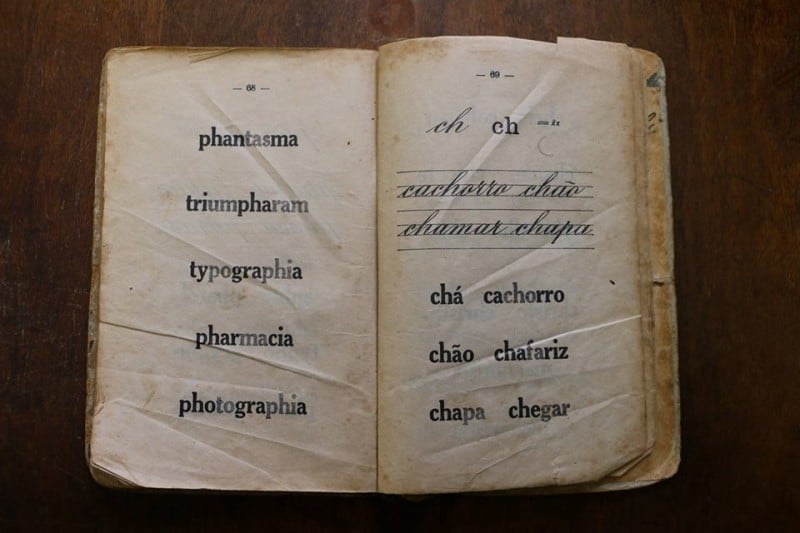 — 68 —
phantasma
triumpharam
typographia
pharmacia
photographia
— 69 —
ch ch = x
cachorro chão
chamar chapa
chá cachorro
chão chafariz
chapa chegar